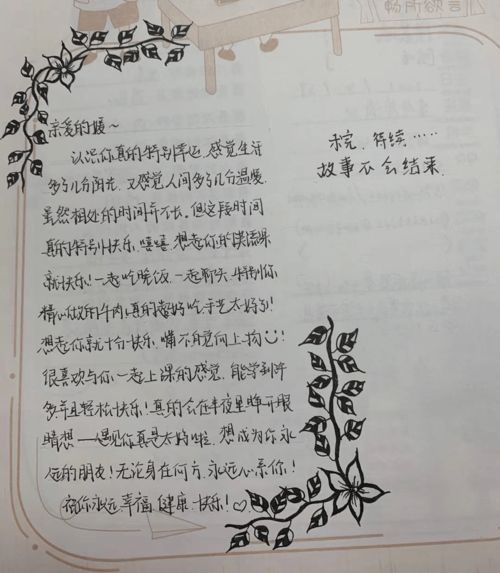 畅所欲言
亲爱的媛~
认识你真的特别幸运,感觉生活
多了几分阳光,又感觉人间多了几分温暖,
虽然相处的时间并不长,但这段时间
真的特别快乐,嘻嘻,想起你的
就快乐!一起吃晚饭,一起聊天,特别你
精心做的牛肉真的超好吃,手艺太好了!
想起你就十分快乐,嘴不自觉向上扬!
很喜欢与你一起上课的感觉,能学到许
多并且轻松快乐!真的会在半夜里睁开眼
瞎想——遇见你真是太好啦,想成为你永
远的朋友!无论身在何方,永远心系你!
祝你永远幸福,健康,快乐!♡
未完,待续……
故事不会结束.